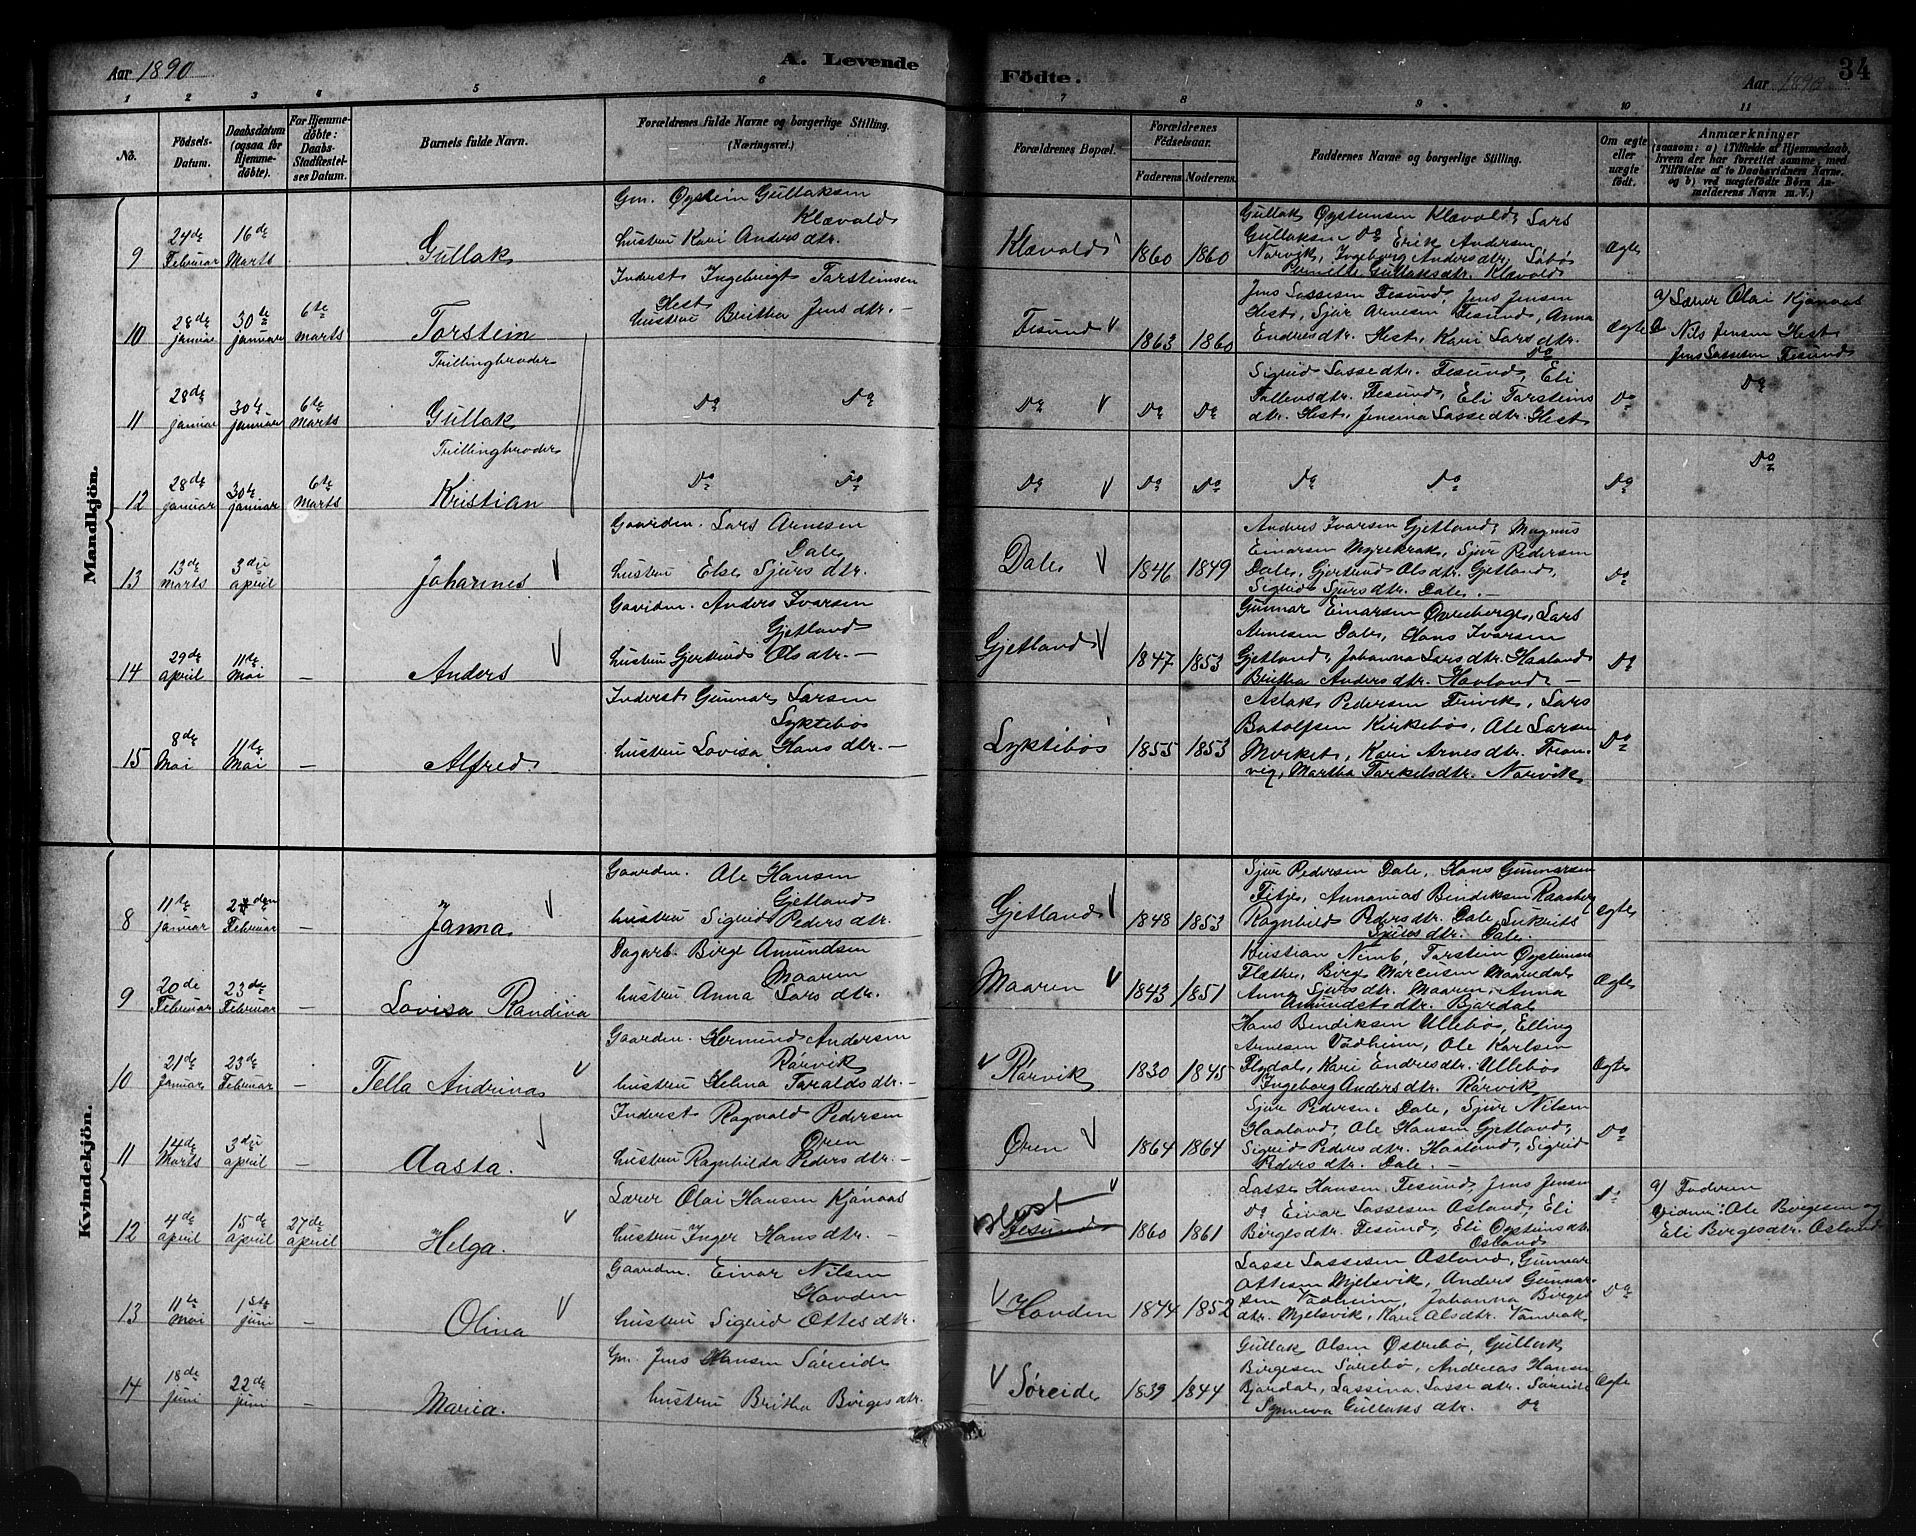 Aar 1890
A. Levende
Födte.
Aar 1890
34
1 2 3 4 5 6 7 8 9 10 11
No.
Födsels-Datum.
Daabsdatum (ogsaa for Hjemmedöbte).
For Hjemmedöbte: Daabs-Stadfæstelses Datum.
Barnets fulde Navn.
Forældrenes fulde Navne og borgerlige Stilling. (Næringsvei.)
Forældrenes Bopæl.
Forældrenes Födselsaar.
Faderens. Moderens.
Faddernes Navne og borgerlige Stilling.
Om ægte eller uægte födt.
Anmærkninger
(saasom: a) i Tilfælde af Hjemmedaab, hvem der har forrettet samme, med Tilföielse af to Daabsvidners Navne, og b) ved uægtefödte Börn Anmelderens Navn m.V.)
Mandkjön.
9 24de Februar 16de Marts Gullak
Gm. Øystein Gullaksen
Klævold
hustru Kari Andersdtr.
Klævold 1860 1860
Gullak Øystensen Klævold, Lars
Gullaksen Do Erik Andersen
Narvik, Ingeborg Andersdtr. Sabø
Pernille Gullaksdtr. Klævold
Ægte
10 28de januar 30te januar 6te Marts Torstein
Trillingbroder
Inderst Ingebrigt Torsteinsen
Hest
hustru Britha Jensdtr. -
Tesund 1863 1860
Jens Lassesen Tesund, Jens Jensen
Hest, Sjur Arnesen Tesund, Anna
Endresdtr. Hest, Kari Larsdtr.
Do
Ægte
a) Lærer Olai Kjønaas
Nils Jensen Hest
Jens Lassesen Tesund
11 28de januar 30te januar 6te Marts Gullak
Trillingbroder
Do Do
Do Do Do
Sigrid Lassedtr. Tesund, Eli
Tollevsdtr. Tesund, Eli Torsteins
dtr. Hest, Jensina Lassedtr. Hest
Do
Do
12 28de januar 30te januar 6te Marts Kristian
Do Do
Do Do Do
Do Do
Do
Do
13 13de Marts 3die april Johannes
Gaardm. Lars Arnesen
Dale
hustru Else Sjursdtr.
Dale 1846 1849
Anders Ivarsen Gjetland, Magnus
Einarsen Myrekrok, Sjur Pedersen
Dale, Gjertrud Olsdtr. Gjetland,
Sigrid Sjursdtr. Dale. -
Do
14 29de april 11te Mai - Anders
Gaardm. Anders Ivarsen
Gjetland
hustru Gjertrud Olsdtr. -
Gjetland 1847 1853
Gunnar Einarsen Øvreberge, Lars
Arnesen Dale, Hans Ivarsen
Gjetland, Johanna Larsdtr. Haaland
Britha Andersdtr. Havland -
Do
15 8de Mai 11te Mai - Alfred
Inderst Gunnar Larsen
Lyktebøs
hustru Lovisa Hansdtr. -
Lyktebø 1855 1853
Aslak Pedersen
Batolfsen Kirkebø, Ole Larsen
Kari Arnesdtr.
Martha Torkelsdtr. Narvik
Do
Kvindekjön.
8 11te januar Februar - Janna
Gaardm. Ole Hansen
Gjetland
hustru Sigrid Pedersdtr.
Gjetland 1848 1853
Sjur Pedersen Dale, Hans Gunnarsen
Titje, Annanias Bendiksen Raasberg
Ragnhild Pedersdtr. Dale,
Sjursdtr. Dale.
Ægte
9 20de Februar 23de Februar - Lovisa Randina
Dagarb. Birge Amundsen
Maaren
hustru Anna Larsdtr.
Maaren 1843 1851
Kristian Nimb, Torstein Øystensen
Flathe, Birge Marcusen Maaredal
Anna Sjursdtr. Maaren, Anna
Amundsdtr. Bjordal
Ægte
10 21de Januar 23de Februar - Tella Andrina
Gaardm. Hermund Andersen
Rørvik
hustru Helma Taraldsdtr. -
Rørvik 1830 1845
Hans Bendiksen Ullebø, Elling
Arnesen Vadheim, Ole Karlsen
Flydal, Kari Endresdtr. Ullebø
Ingeborg Andersdtr. Rørvik
Ægte
11 14de Marts 3die april - Aasta.
Inderst Ragnvald Pedersen
Øren
hustru Ragnhilda Pedersdtr. -
Øren 1864 1864
Sjur Pedersen Dale, Sjur Nilsen
Haaland, Ole Hansen Gjetland,
Sigrid Pedersdtr. Haaland, Sigrid
Pedersdtr. Dale. -
Do
12 4de april 15de april 27de april Helga.
Lærer Olai Hansen Kjønaas
hustru Inger Hansdtr. -
Hest
Tesund 1860 1861
Lasse Hansen Tesund, Jens Jensen
Do Einar Lassesen Osland, Eli
Børgesdtr. Tesund, Eli Øystensdtr
Osland
Do
a) Faderen
Vidner: Ole Børgesen og
Eli Børgesdtr. Osland
13 11te Mai 1ste juni - Olina
Gaardm. Einar Nilsen
Hovden
hustru Sigrid Ottesdtr.
Hovden 1844 1852
Lasse Lassesen Osland, Gunnar
Ottesen Mjelsvik, Anders Gunnar-
sen Vadheim, Johanna Birges
dtr. Mjelsvik, Kari Olsdtr.
Do
14 18de juni 22de juni - Maria.
Gm. Jens Hansen Søreide
hustru Britha Børgesdtr.
Søreide 1839 1844
Gullak Olsen Østrebø, Gullak
Birgesen Sørebø, Andreas Hansen
Bjordal, Lassina Lassedtr. Søreide
Synneva Gullaksdtr. Do
Ægte